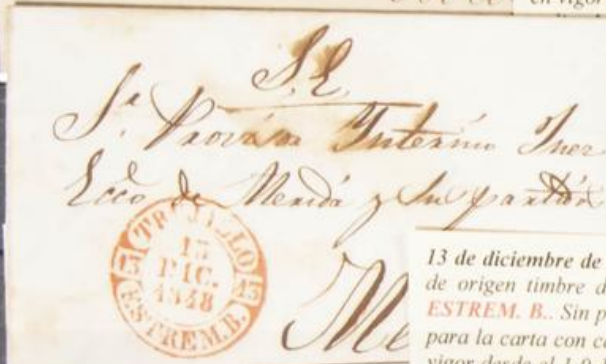 en vigor
S. E.
Sr. Provisor Interino Juez
Ecco de Merida y su partido
TRUJILLO
13
DIC.
1848
ESTREM.B.
Me
13 de diciembre de
de origen timbre d
ESTREM. B.. Sin p
para la carta con c
vigor desde el 1.9